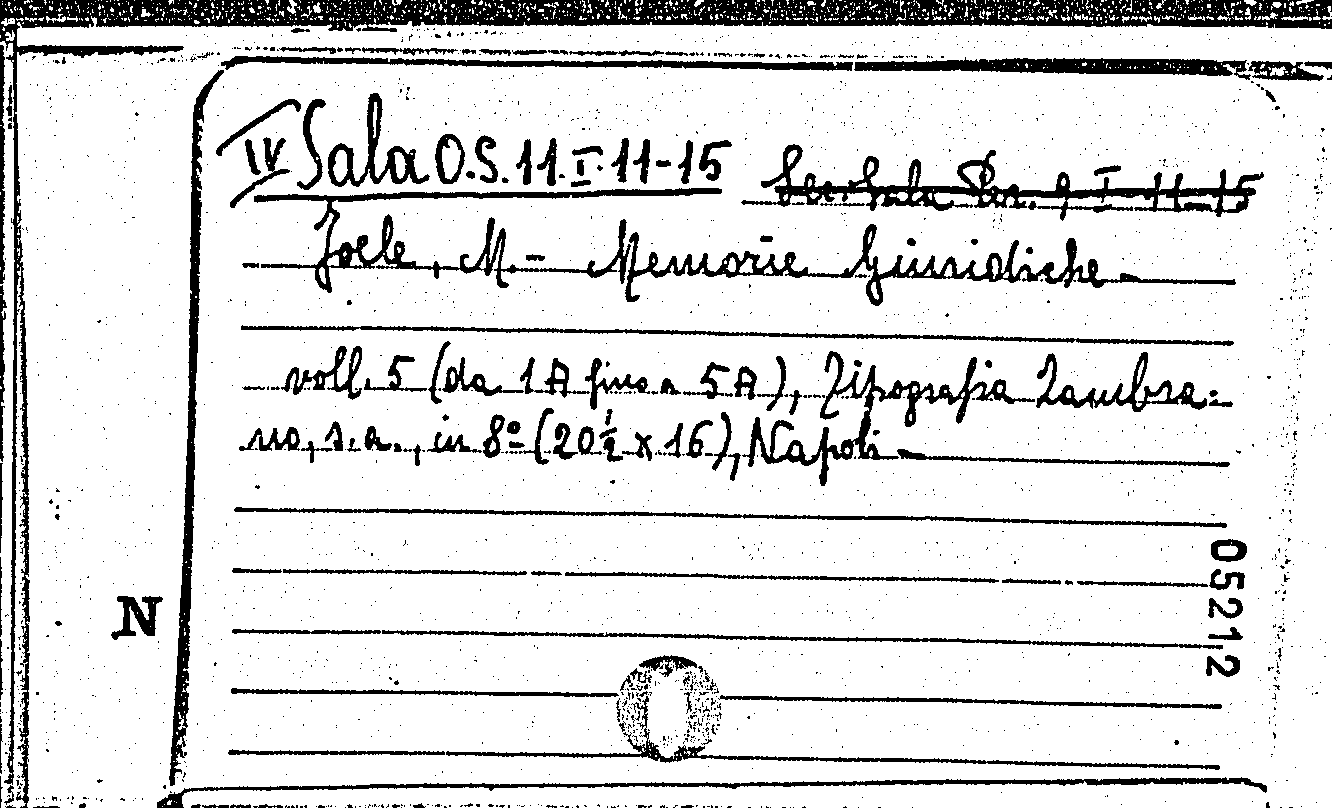 IV Sala O.S. 11. I. 11-15 Sec. Sala Per. 9 I 11-15
Joele, M. - Memorie Giuridiche -
voll. 5 (da 1A fino a 5A), Tipografia Zambra:
no, s.a., in 8º (20 ½ x 16), Napoli -
05212
N